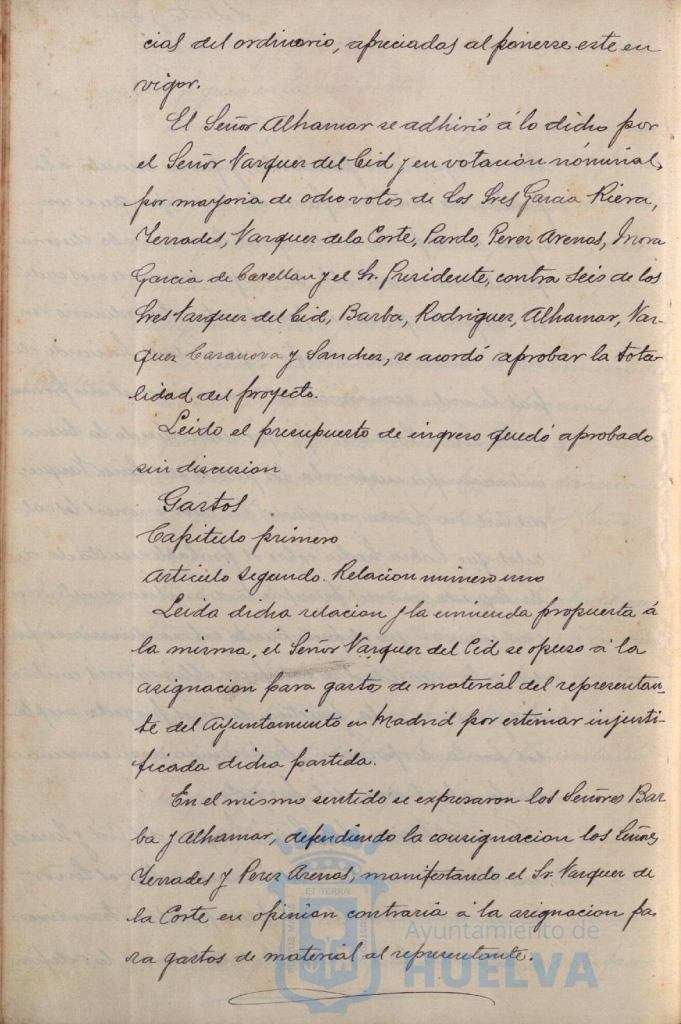 cial del ordinario, apreciadas al ponerse este en
vigor.
El Señor Alhamar se adhirió á lo dicho por
el Señor Vazquez del Cid y en votación nóminal,
por mayoria de ocho votos de los Sres Garcia Riera,
Terrades, Vazquez de la Corte, Pardo, Perez Arenas, Mora
Garcia de Castellan y el Sr. Presidente, contra seis de los
Sres Vazquez del Cid, Barba, Rodriguez, Alhamar, Vaz-
quez Casanova y Sanchez, se acordó aprobar la tota-
lidad del proyecto.
Leido el presupuesto de ingreso quedó aprobado
sin discusion
Gastos
Capitulo primero
Articulo segundo. Relacion número uno
Leida dicha relacion y la enmienda propuesta á
la misma, el Señor Vazquez del Cid se opuso á la
asignacion para gastos de material del representan-
te del Ayuntamiento en Madrid por estimar injusti-
ficada dicha partida.
En el mismo sentido se expresaron los Señores Bar-
ba y Alhamar, defendiendo la consignacion los Señores
Terrades y Perez Arenas, manifestando el Sr. Vazquez de
la Corte en opinion contraria á la asignacion pa-
ra gastos de material al representante.
ET TERRÆ
Ayuntamiento de
HUELVA